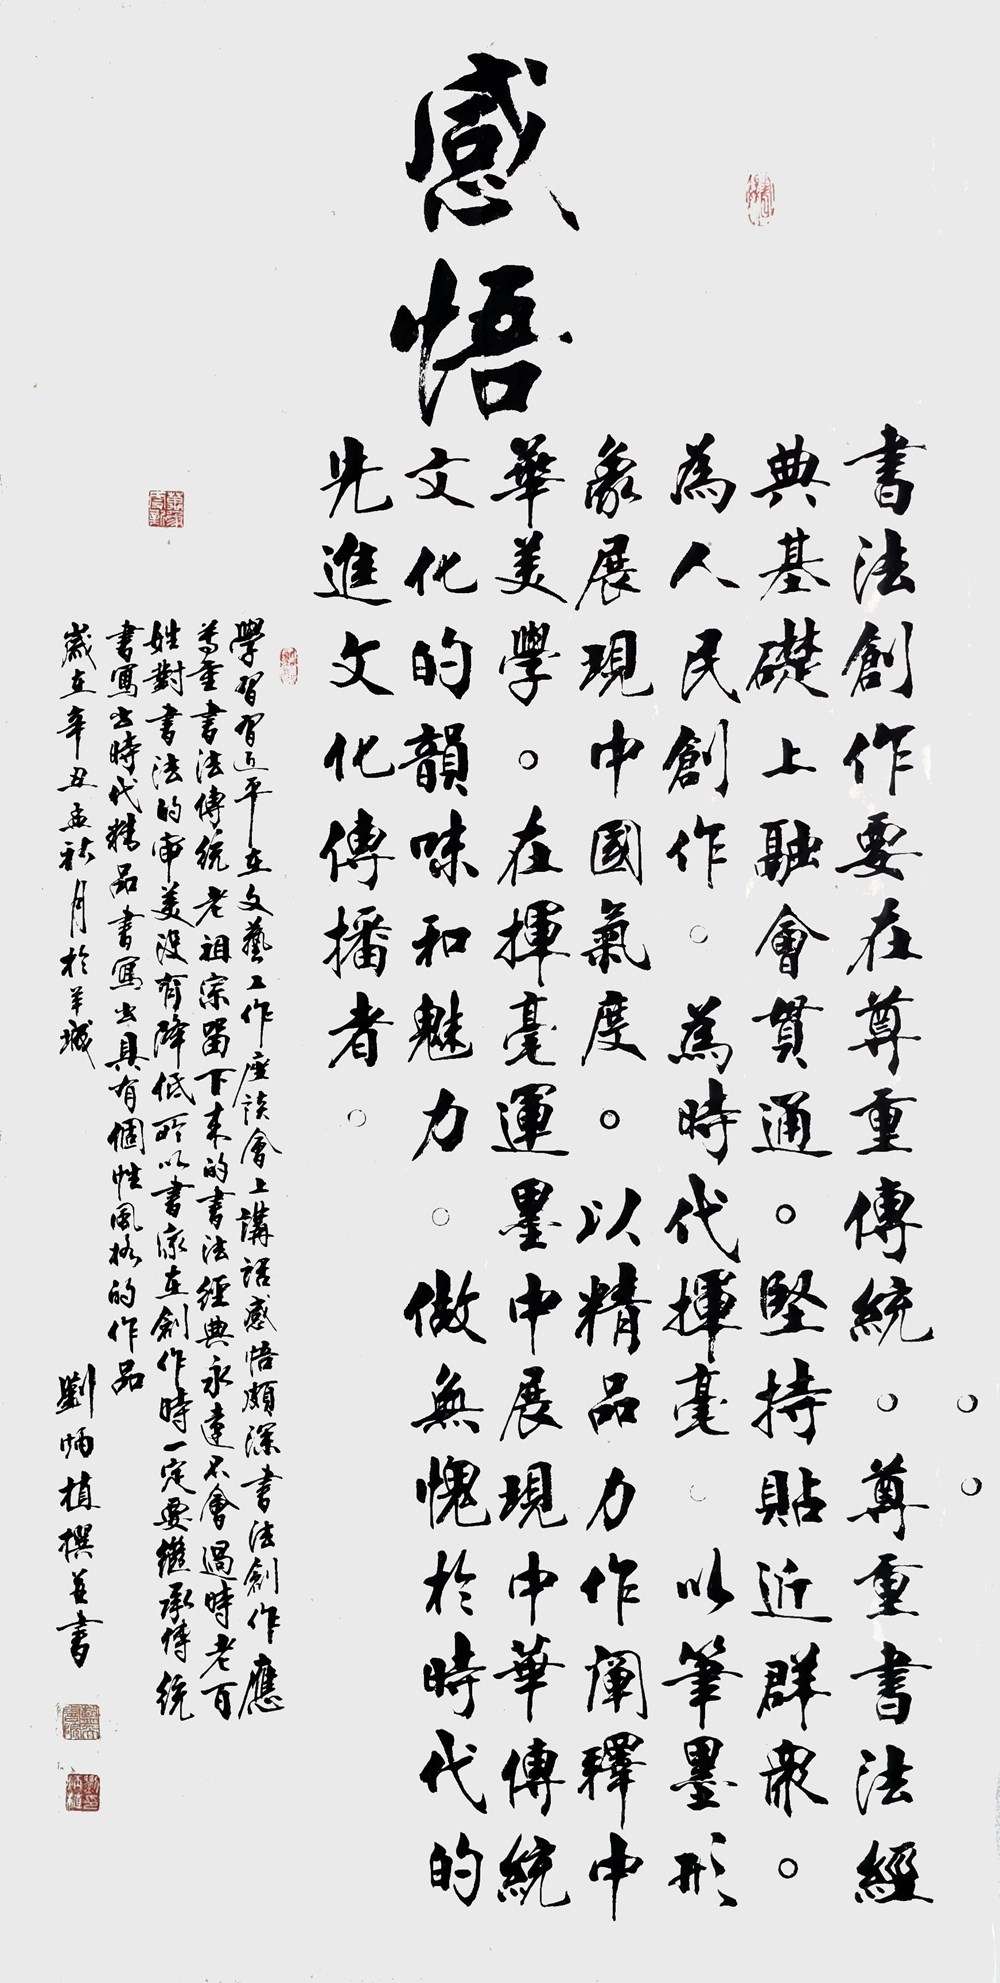 感悟
書法創作要在尊重傳統。尊重書法經
典基礎上融會貫通。堅持貼近群眾。
為人民創作。為時代揮毫。以筆墨形
象展現中國氣度。以精品力作闡釋中
華美學。在揮毫運墨中展現中華傳統
文化的韻味和魅力。做無愧於時代的
先進文化傳播者。
學習習近平在文藝工作座談會上講話感悟頗深書法創作應
尊重書法傳統老祖宗留下來的書法經典永遠不會過時老百
姓對書法的審美沒有降低所以書家在創作時一定要繼承傳統
書寫出時代精品書寫出具有個性風格的作品
歲在辛丑孟秋月於羊城
劉炳植撰並書